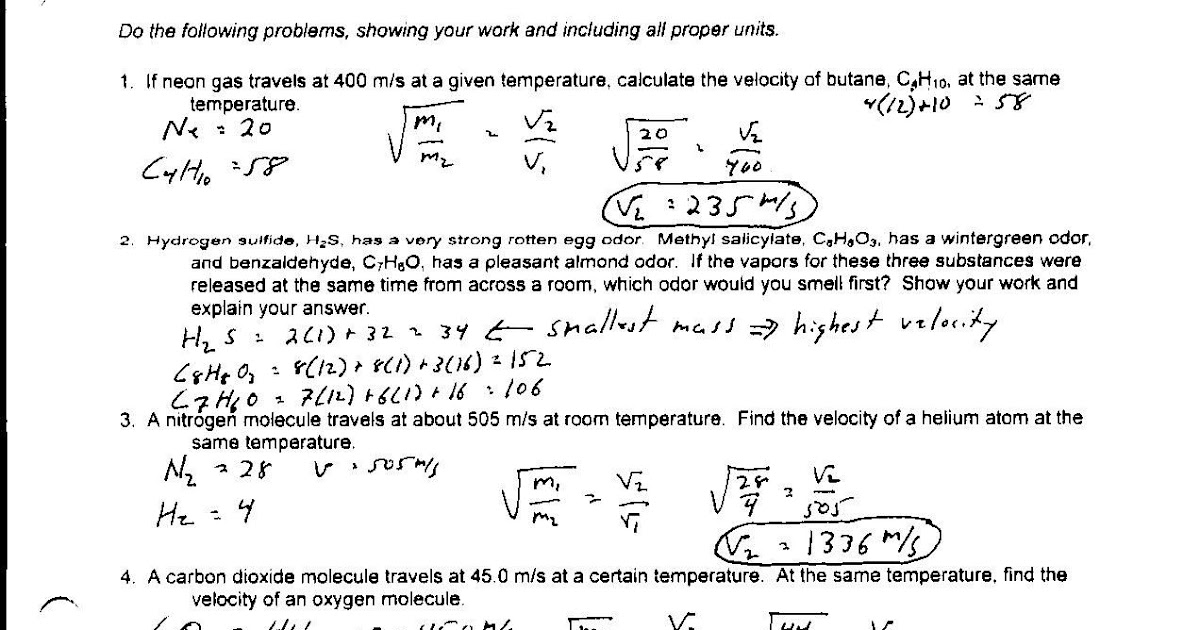 Do the following problems, showing your work and including all proper units.
1. If neon gas travels at 400 m/s at a given temperature, calculate the velocity of butane, C₄H₁₀, at the same
temperature.
4(12)+10 = 58
Ne = 20
C₄H₁₀ = 58
√(m₁/m₂) = V₂/V₁
√(20/58) = V₂/400
V₂ = 235 m/s
2. Hydrogen sulfide, H₂S, has a very strong rotten egg odor. Methyl salicylate, C₈H₈O₃, has a wintergreen odor,
and benzaldehyde, C₇H₆O, has a pleasant almond odor. If the vapors for these three substances were
released at the same time from across a room, which odor would you smell first? Show your work and
explain your answer.
H₂S = 2(1) + 32 = 34 ← smallest mass ⇒ highest velocity
C₈H₈O₃ = 8(12) + 8(1) + 3(16) = 152
C₇H₆O = 7(12) + 6(1) + 16 = 106
3. A nitrogen molecule travels at about 505 m/s at room temperature. Find the velocity of a helium atom at the
same temperature.
N₂ = 28 v = 505 m/s
He = 4
√(m₁/m₂) = V₂/V₁
√(28/4) = V₂/505
V₂ = 1336 m/s
4. A carbon dioxide molecule travels at 45.0 m/s at a certain temperature. At the same temperature, find the
velocity of an oxygen molecule.